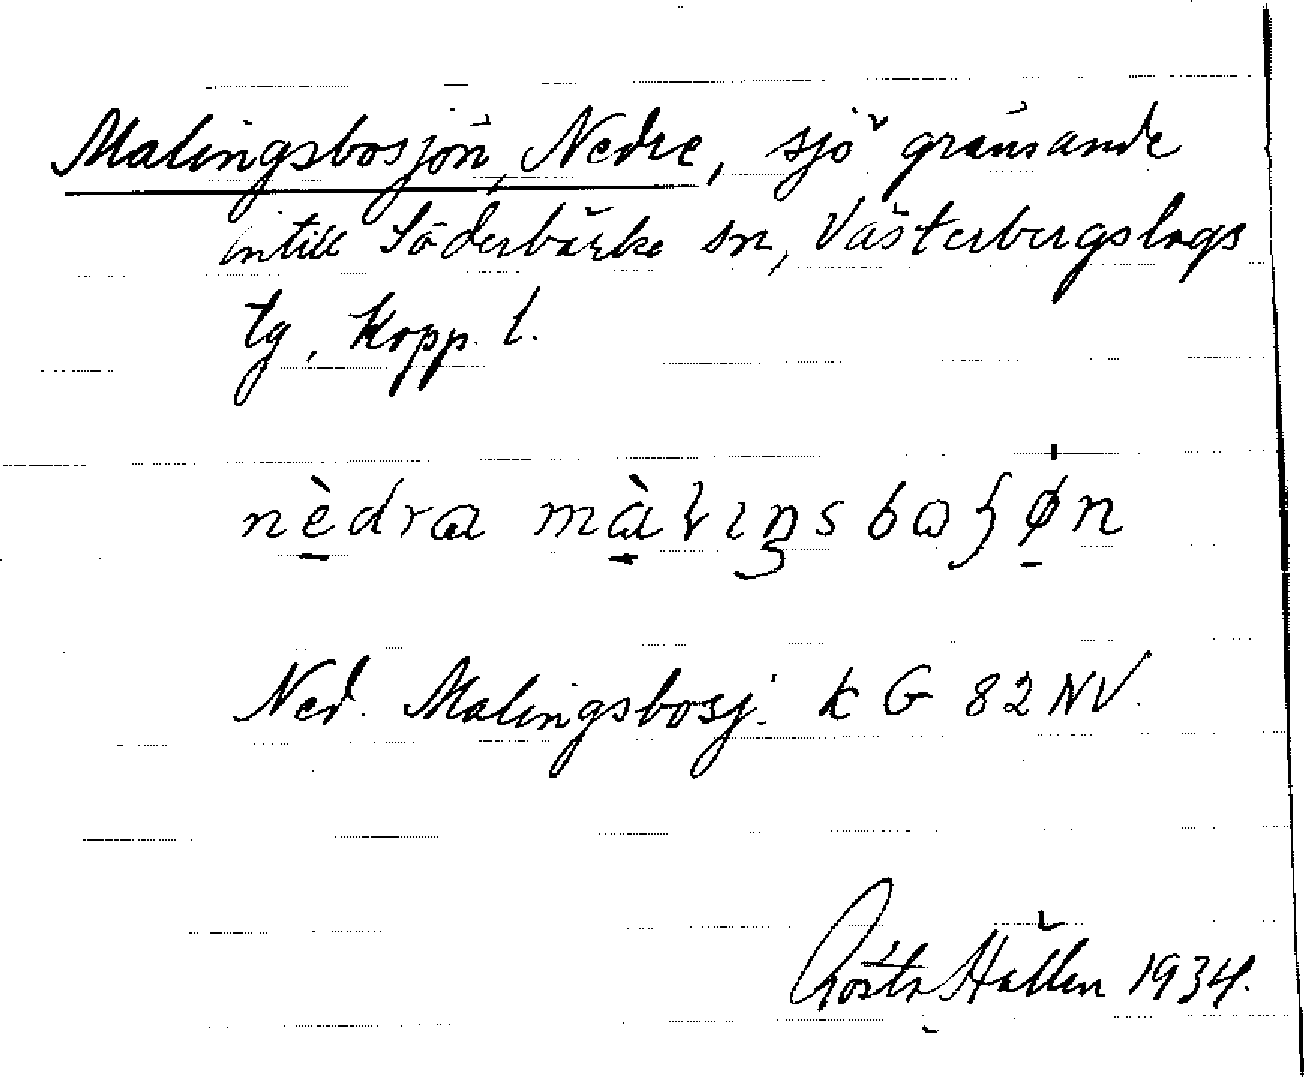 Malingsbosjön, Nedre, sjö gränsande
intill Söderbärke sn, Västerbergslags
tg, Kopp. l.
nèdra màlıŋsboʃøn
Ned. Malingsbosj. k G 82 NV.
Gösta Hållen 1934.